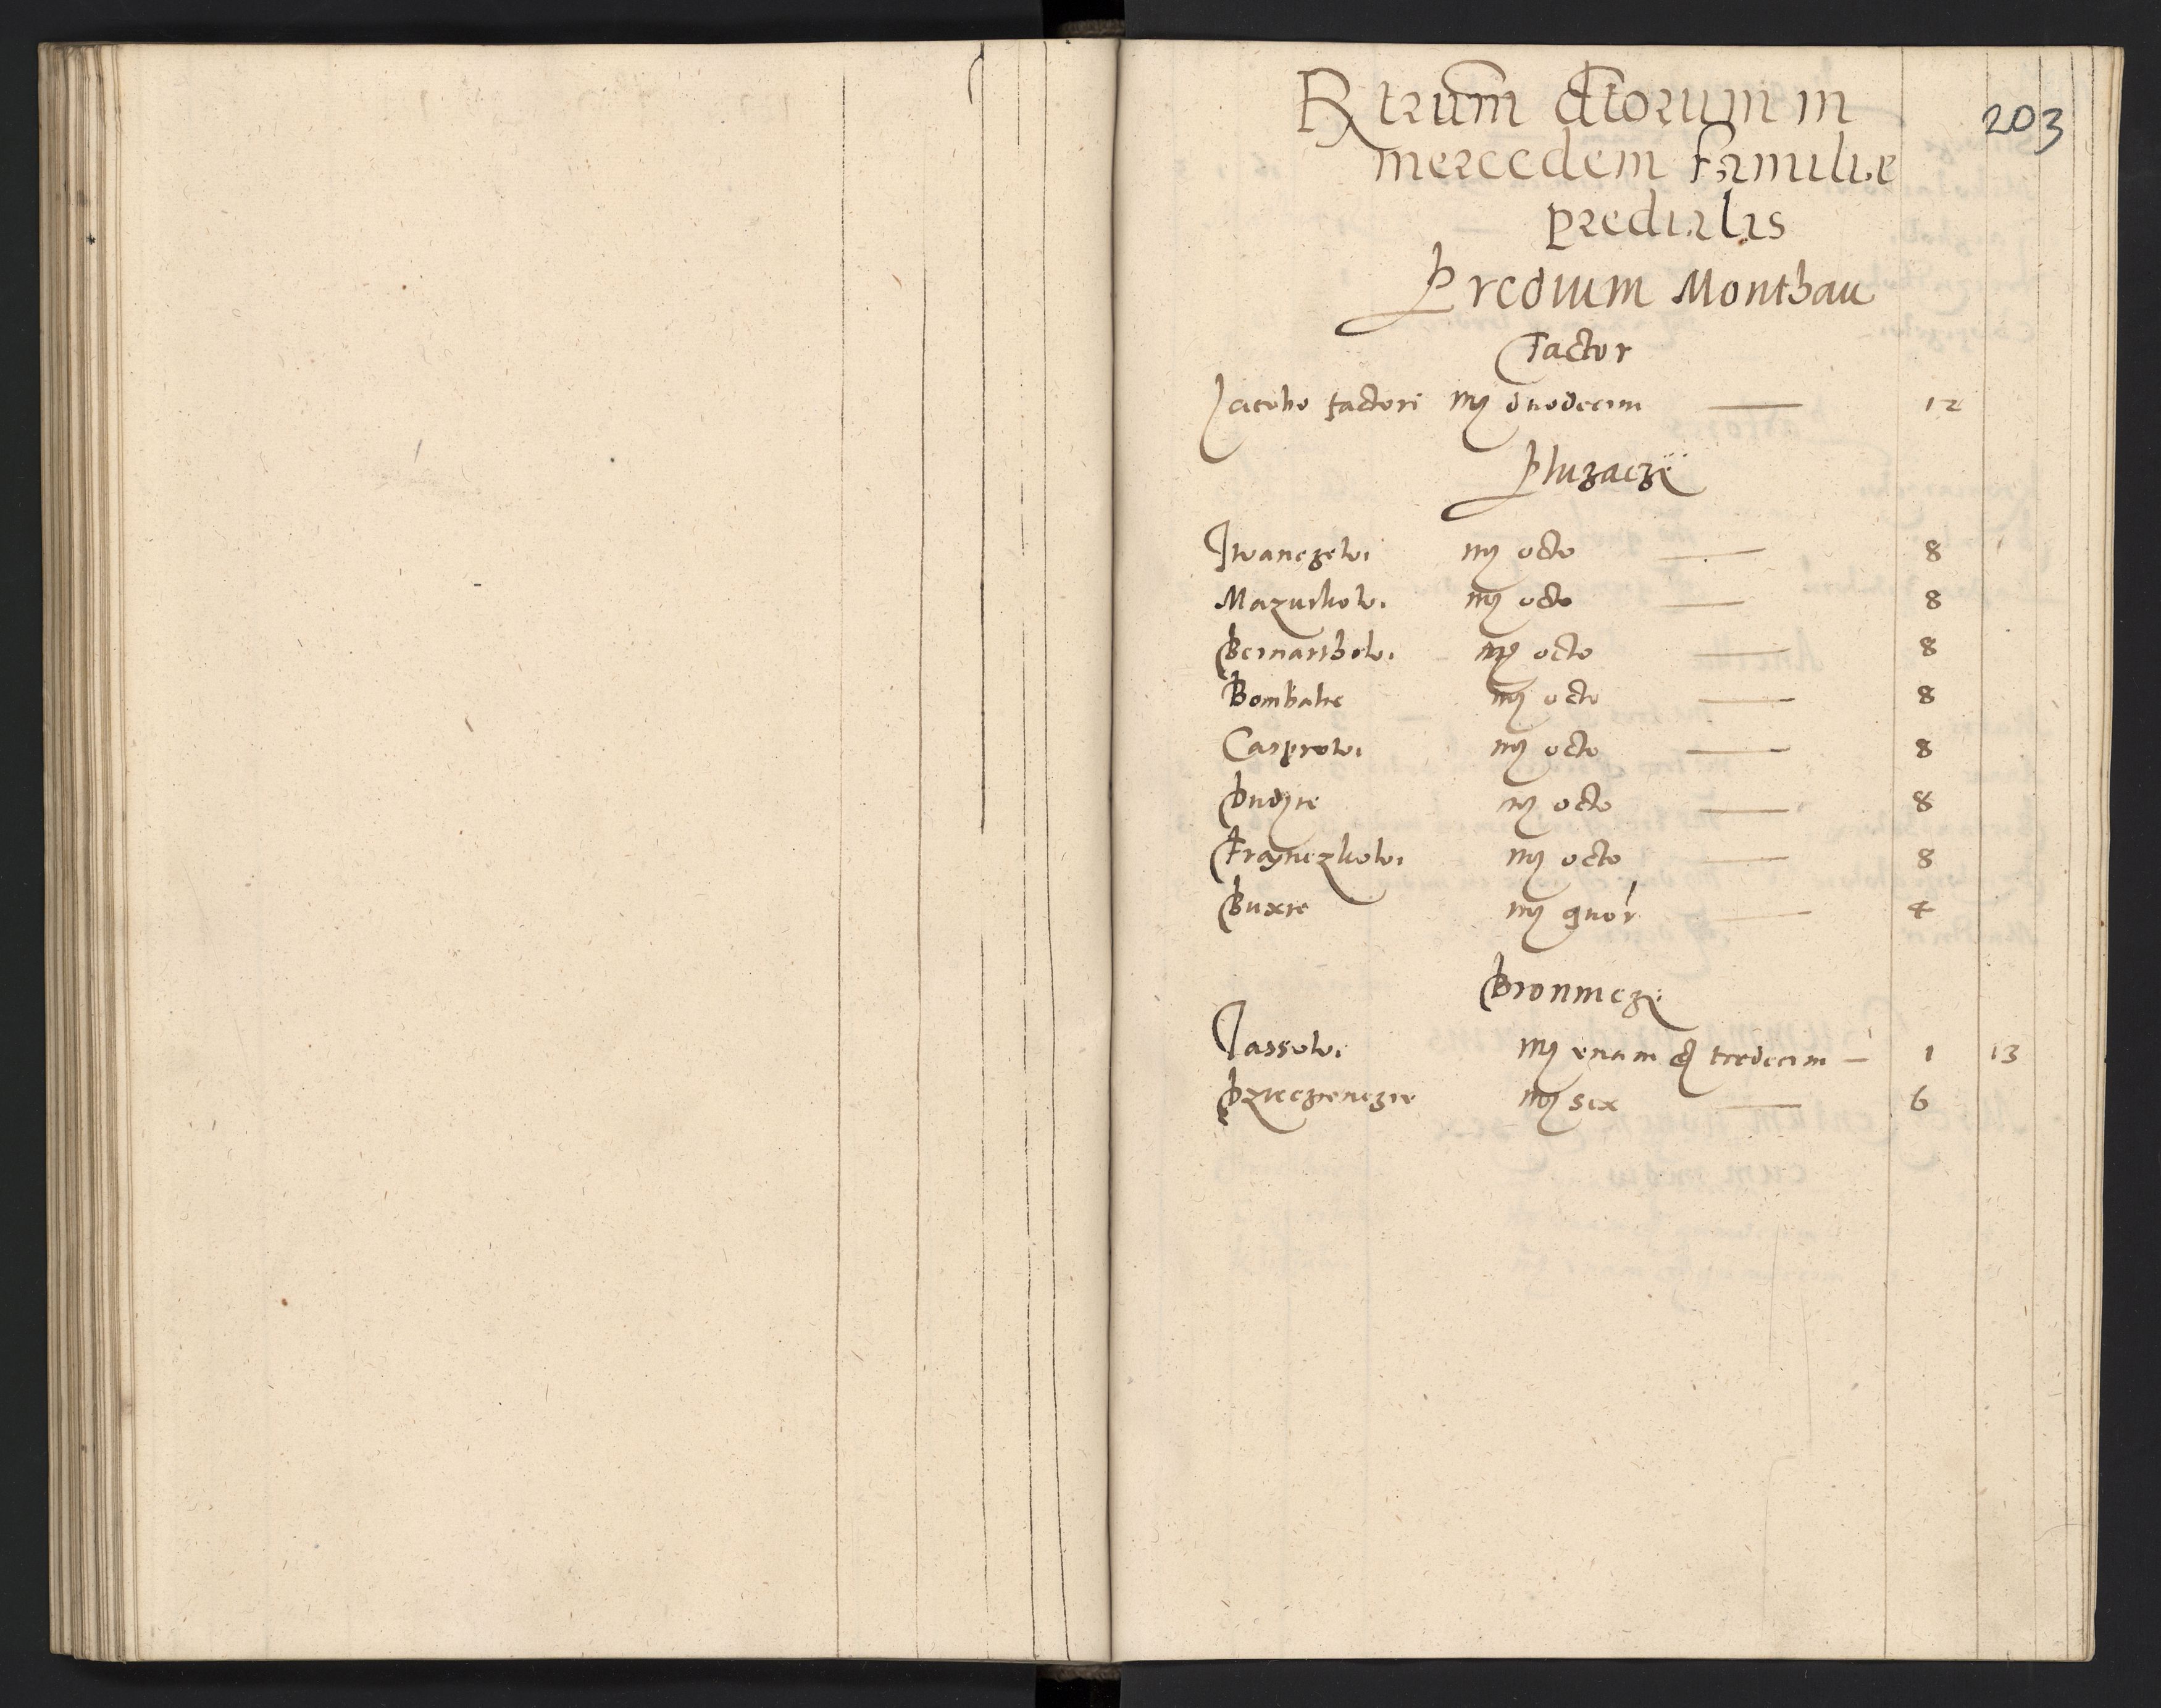 203
R trum dtorum in
mercedem familiæ
predialis
Predium Monthau
Factor
Jacobo factori mr duodecim — 12
Pluzaczÿ
Iwanczewi mr octo — 8
Mazurkowi mr octo — 8
Bernarthowi mr octo — 8
Bombalie mr octo — 8
Casprowi mr octo — 8
Dudzie mr octo — 8
Fraynczkowi mr octo — 8
Buxie mr quor — 4
Bronniczÿ
Jassowi mr unam & tredecim — 1 13
mr sex — 6